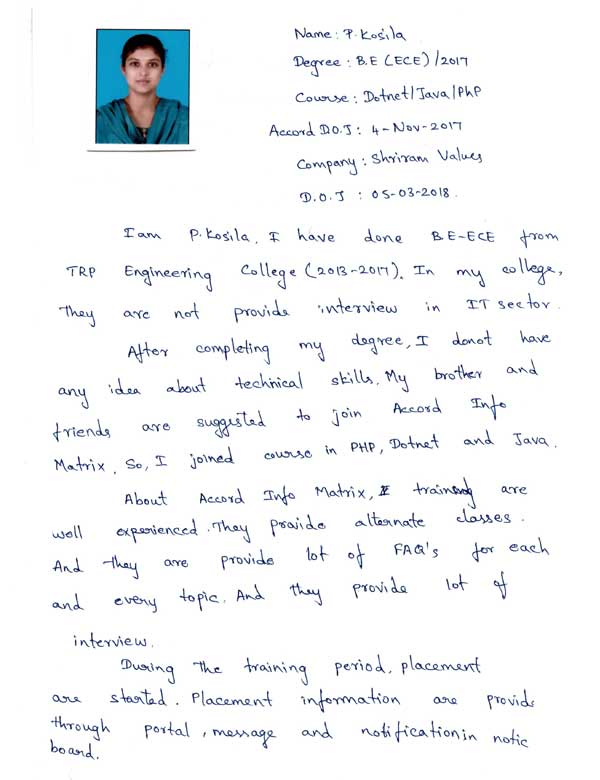 Name : P. Kosila
Degree : B.E (ECE) / 2017
Course : Dotnet / Java / PhP
Accord D.O.J : 4-Nov-2017
Company : Shriram Values
D.O.J : 05-03-2018.
I am P. Kosila. I have done B.E-ECE from
TRP Engineering College (2013-2017). In my college,
They are not provide interview in IT sector.
After completing my degree, I donot have
any idea about technical skills. My brother and
friends are suggested to join Accord Info
Matrix. So, I joined course in PHP, Dotnet and Java.
About Accord Info Matrix, training are
well experienced. They provide alternate classes.
And they are provide lot of FAQ's for each
and every topic. And they provide lot of
interview.
During The training period, placement
are started. Placement information are provide
through portal, message and notification in notic
board.